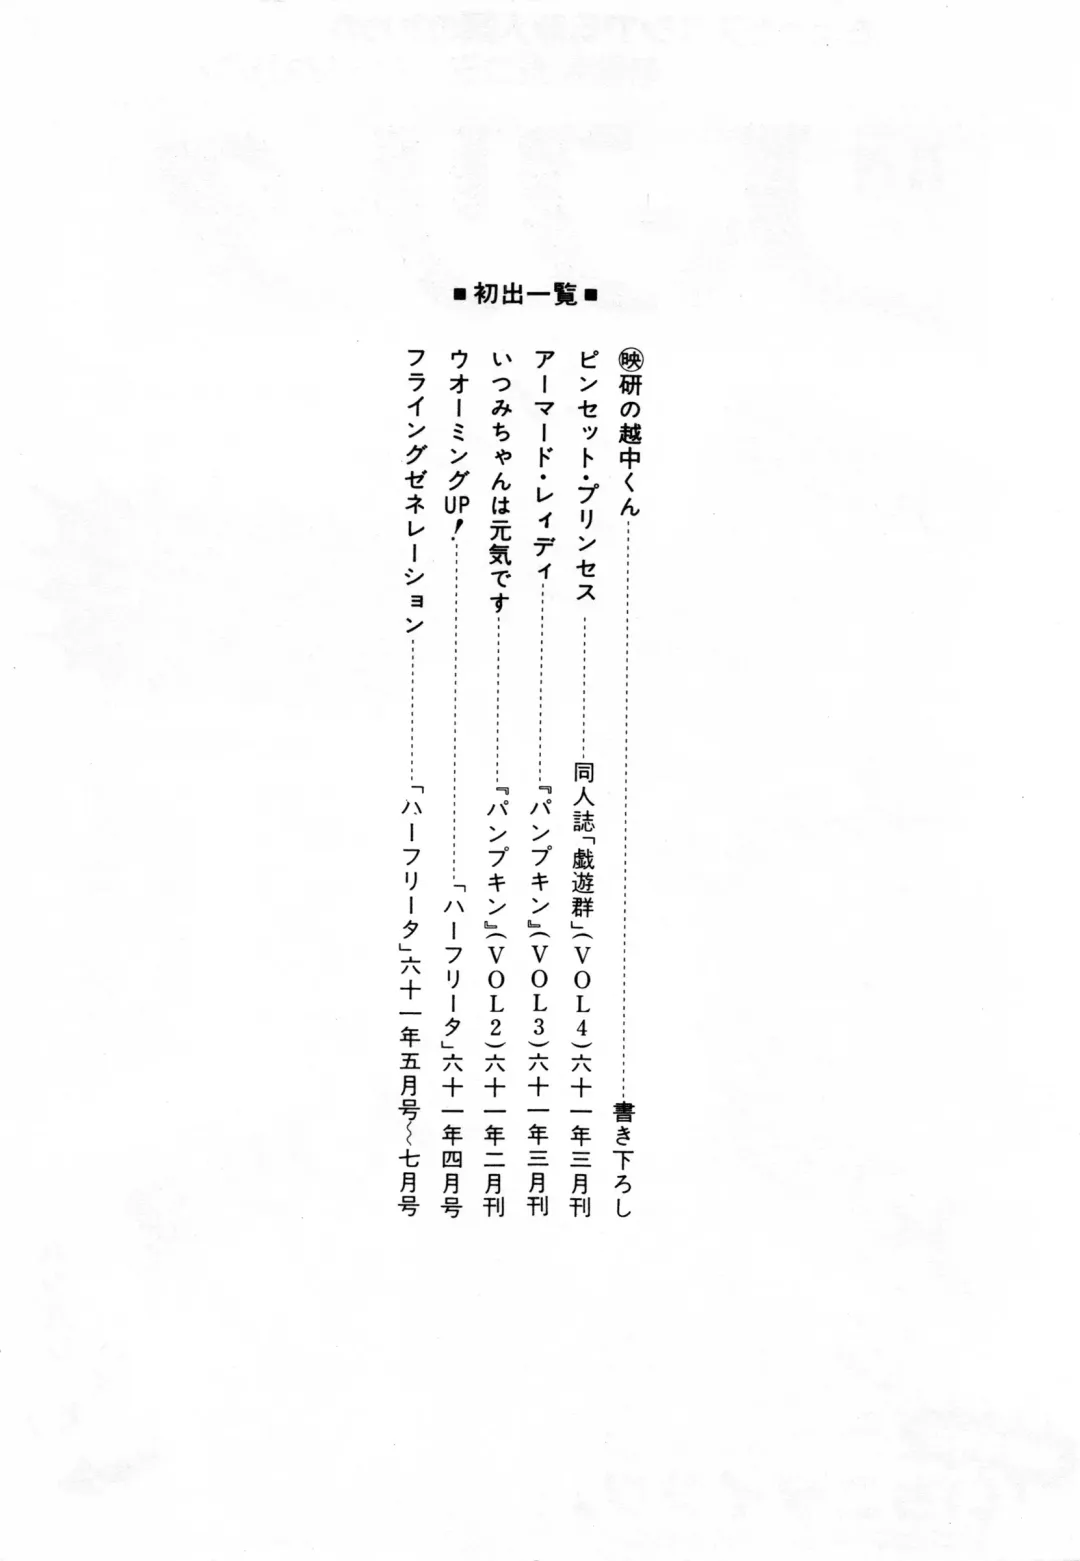 ■初出一覧■
㋱研の越中くん……書き下ろし
ピンセット・プリンセス……同人誌「戯遊群」(VOL4)六十一年三月刊
アーマード・レィディ……『パンプキン』(VOL3)六十一年三月刊
いつみちゃんは元気です……『パンプキン』(VOL2)六十一年二月刊
ウオーミングUP!……「ハーフリータ」六十一年四月号
フライングゼネレーション……「ハーフリータ」六十一年五月号〜七月号